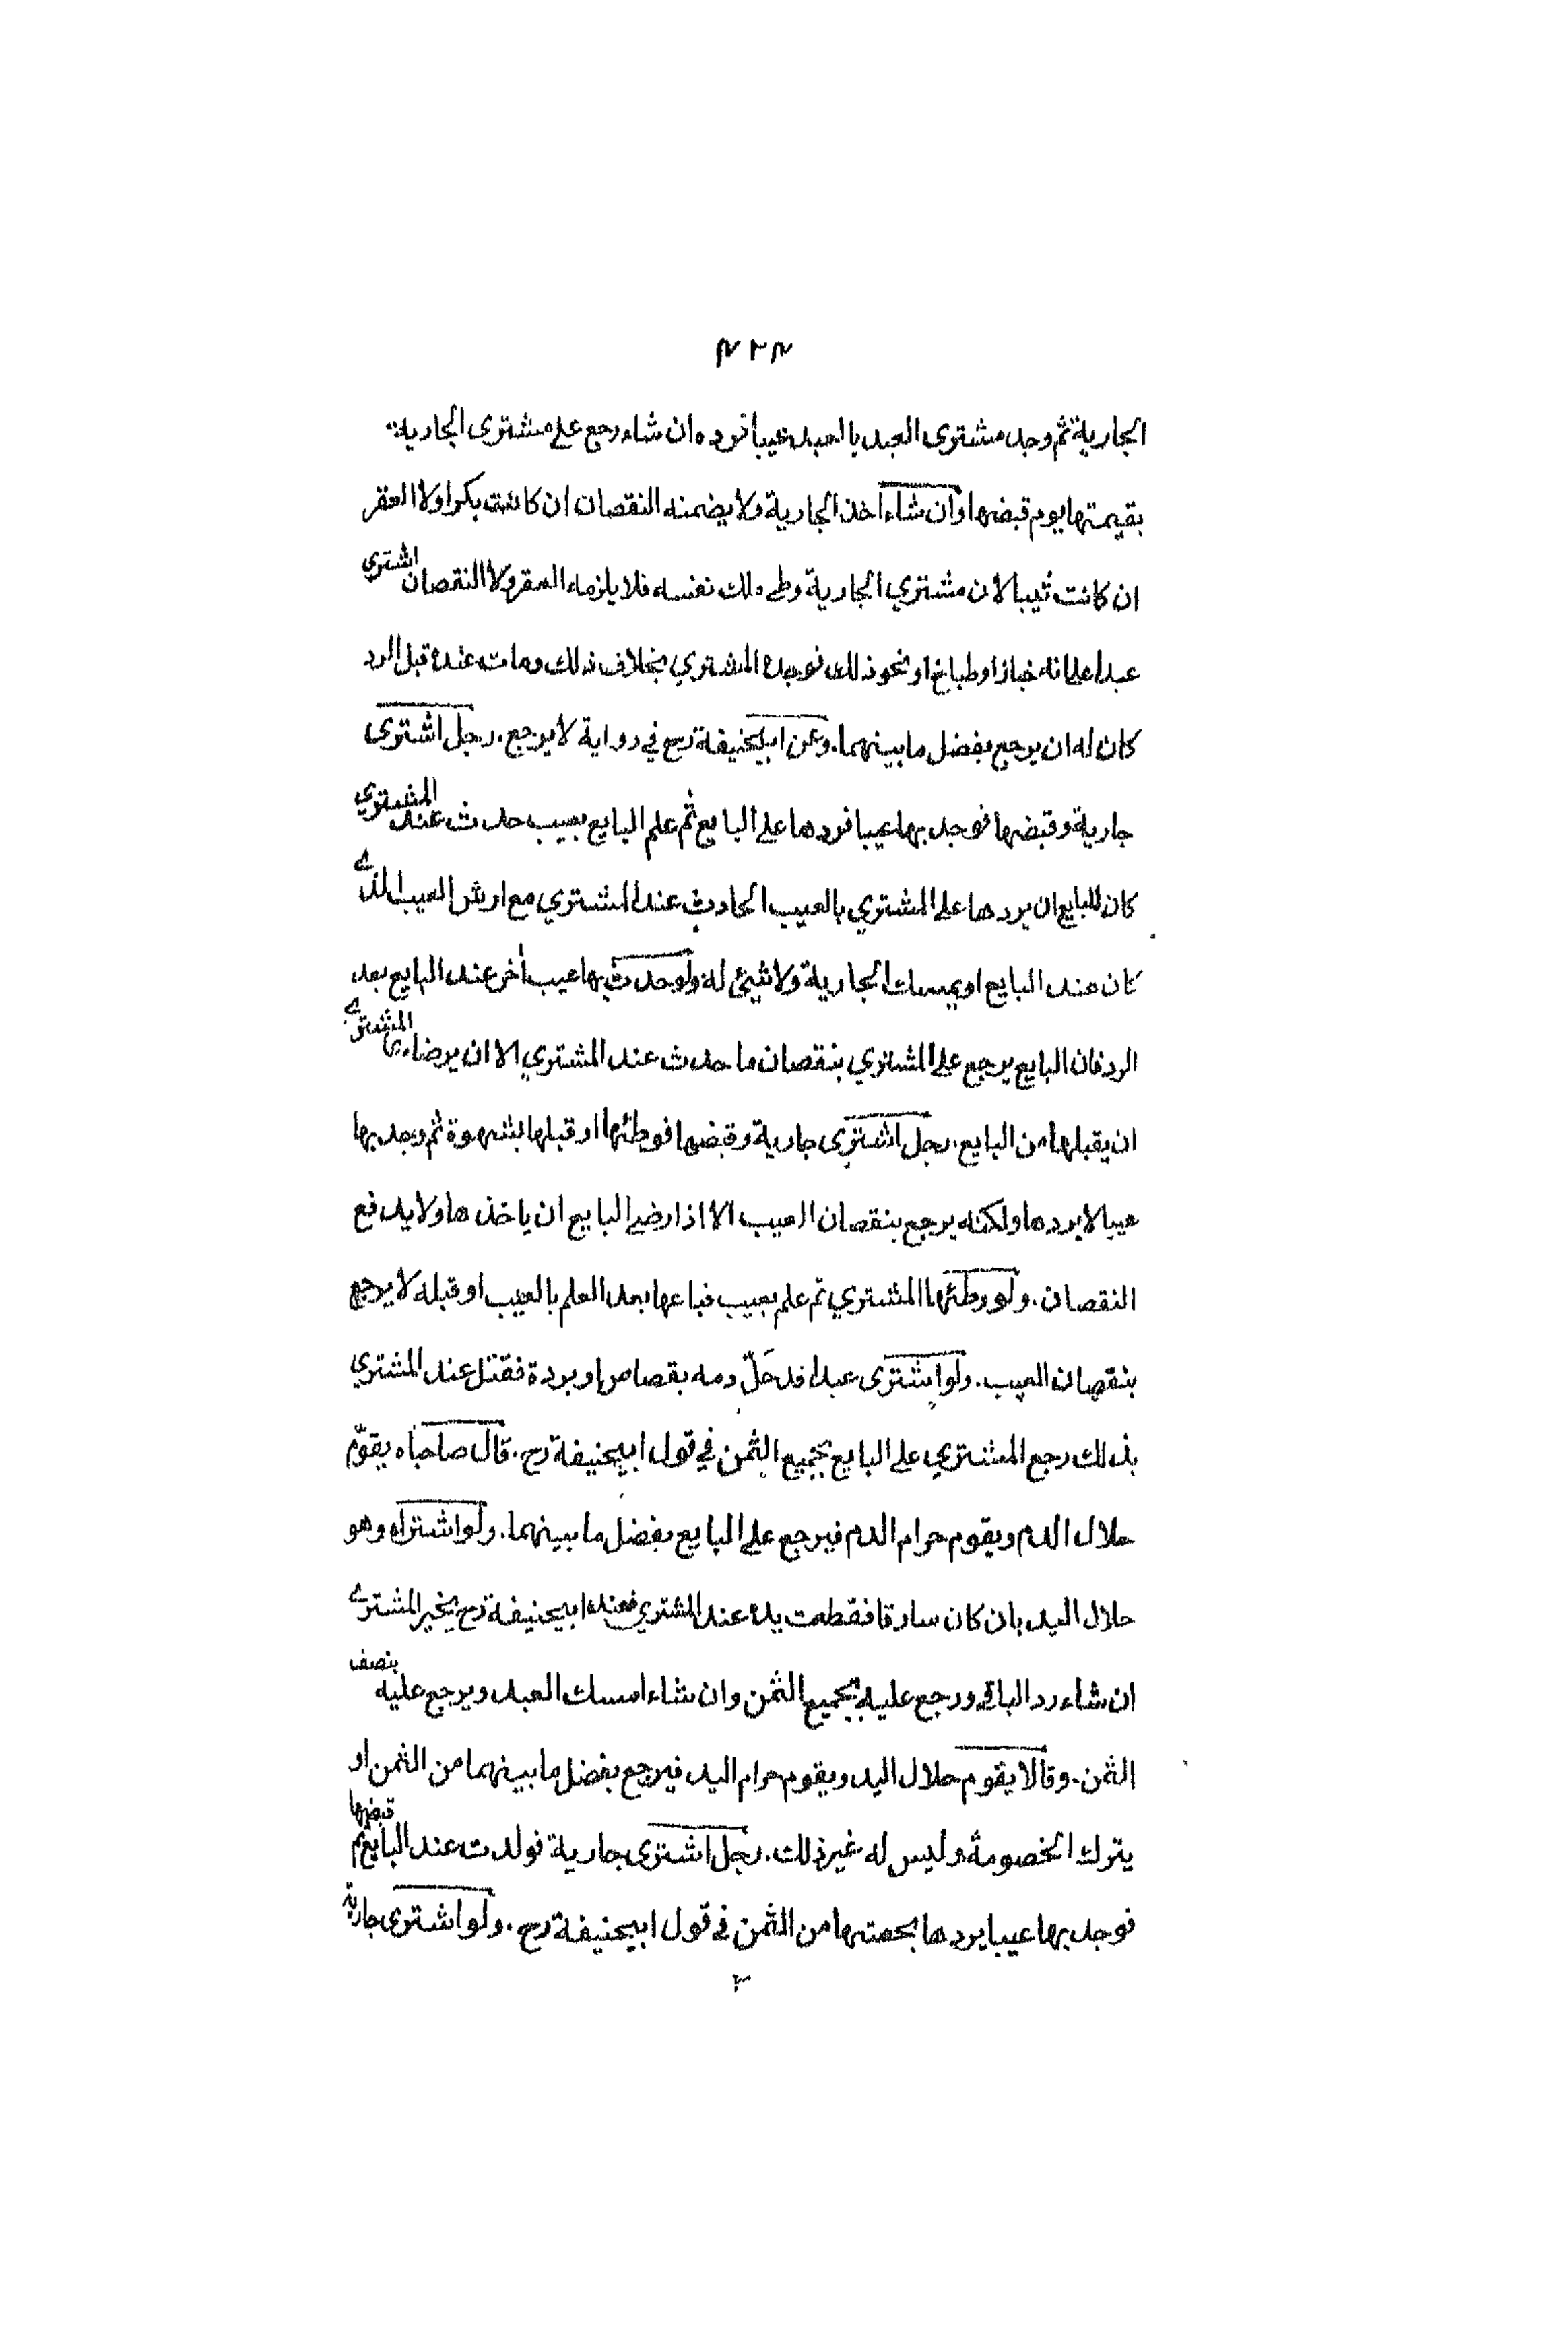 ٣٢٣
الجارية ثم وجد مشترى العبد بالعبد عيبا فرده ان شاء رجع على مشترى الجارية
بقيمتها يوم قبضها وان شاء اخذ الجارية ولا يضمنه النقصان ان كانت بكرا ولا العقر
ان كانت ثيبا لان مشتري الجارية وطى ملك نفسه فلا يلزمه العقر ولا النقصان اشتري
عبدا على انه خباز او طباخ او نحو ذلك فوجده المشتري بخلاف ذلك ومات عنده قبل الرد
كان له ان يرجع بفضل ما بينهما. وعن ابيحنيفة رح في رواية لا يرجع. رجل اشترى
جارية وقبضها فوجد بها عيبا فردها على البايع ثم علم البايع بعيب حدث عند المشتري
كان للبايع ان يردها على المشتري بالعيب الحادث عند المشتري مع ارش العيب الذي
كان عند البايع او يمسك الجارية ولا شيئ له ولو حدث بها عيب أخر عند البايع بعد
الرد فان البايع يرجع على المشتري بنقصان ما حدث عند المشتري الا ان يرضى المشتري
ان يقبلها من البايع. رجل اشترى جارية وقبضها فوطئها او قبلها بشهوة ثم وجد بها
عيبا لا يردها ولكنه يرجع بنقصان العيب الا اذا رضي البايع ان ياخذها ولا يدفع
النقصان. ولو وطئها المشتري ثم علم بعيب فباعها بعد العلم بالعيب او قبله لا يرجع
بنقصان العيب. ولو اشترى عبدا قد حَلّ دمه بقصاص او بردة فقتل عند المشتري
بذلك رجع المشتري على البايع بجميع الثمن في قول ابيحنيفة رح. قال صاحباه يقوّم
حلال الدم ويقوم حرام الدم فيرجع على البايع بفضل ما بينهما. ولو اشتراه وهو
حلال اليد بان كان سارقا فقطعت يده عند المشتري فعند ابيحنيفة رح يخير المشتري
ان شاء رد الباقي ورجع عليه بجميع الثمن وان شاء امسك العبد ويرجع عليه بنصف
الثمن. وقالا يقوم حلال اليد ويقوم حرام اليد فيرجع بفضل ما بينهما من الثمن او
يترك الخصومة وليس له غير ذلك. رجل اشترى جارية فولدت عند البايع ثم قبضها
فوجد بها عيبا يردها بحصتها من الثمن في قول ابيحنيفة رح. ولو اشترى جارية
٢